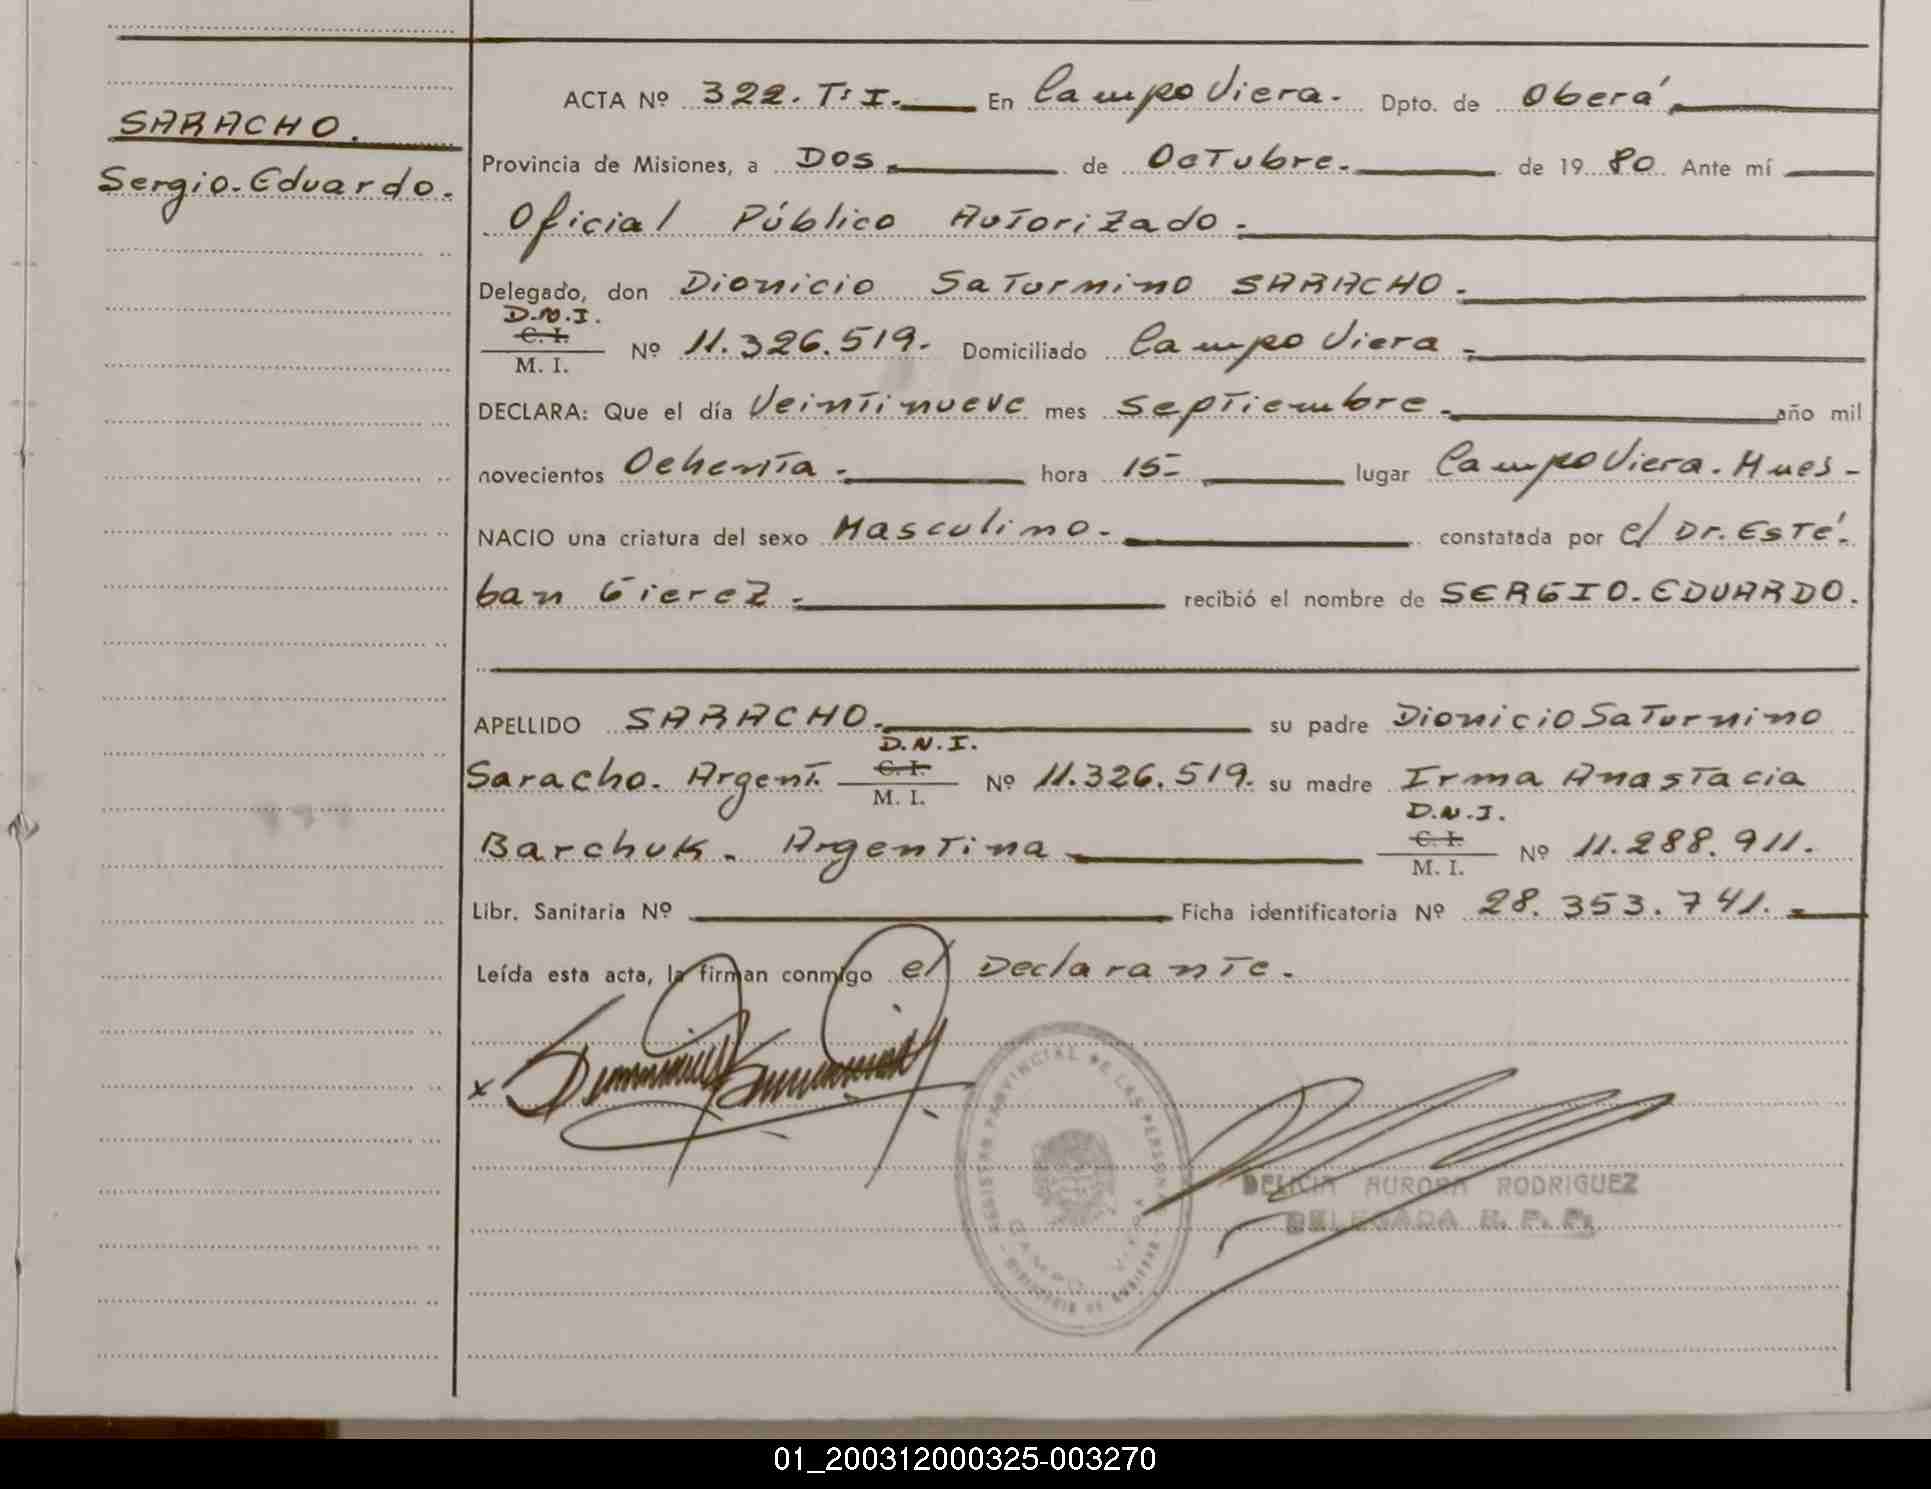 SARACHO.
Sergio-Eduardo.
ACTA Nº 322. T: I. En Campo Viera. Dpto. de Oberá
Provincia de Misiones, a Dos. de Octubre. de 1980. Ante mí
Oficial Público Autorizado.
Delegado, don Dionicio Saturnino SARACHO.
D.N.I.
C. I.
M. I. Nº 11.326.519. Domiciliado Campo Viera
DECLARA: Que el día Veintinueve mes septiembre. año mil
novecientos Ochenta. hora 15- lugar Campo Viera. Mnes-
NACIO una criatura del sexo Masculino. constatada por el Dr. Esté-
ban Gierez. recibió el nombre de SERGIO-EDUARDO.
APELLIDO SARACHO. su padre Dionicio Saturnino
D.N.I.
Saracho. Argent. C. I. M. I. Nº 11.326.519. su madre Irma Anastacia
D.N.I.
Barchuk. Argentina C. I. M. I. Nº 11.288.911.
Libr. Sanitaria Nº Ficha identificatoria Nº 28.353.741.
Leída esta acta, la firman conmigo el Declarante.
x
REGISTRO PROVINCIAL DE LAS PERSONAS
CAMPO VIERA
DELICIA AURORA RODRIGUEZ
DELEGADA R. P. P.
01_200312000325-003270